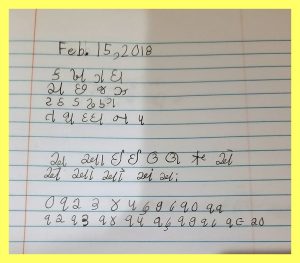 Feb. 15, 2018
ક ખ ગ ઘ
ચ છ જ ઝ
ટ ઠ ડ ઢ ણ
ત થ દ ધ ન પ
અ આ ઇ ઈ ઉ ઊ ઋ એ
ઐ ઓ ઔ અં અઃ
૦ ૧ ૨ ૩ ૪ ૫ ૬ ૭ ૮ ૯ ૧૦ ૧૧
૧૨ ૧૩ ૧૪ ૧૫ ૧૬ ૧૭ ૧૮ ૧૯ ૨૦